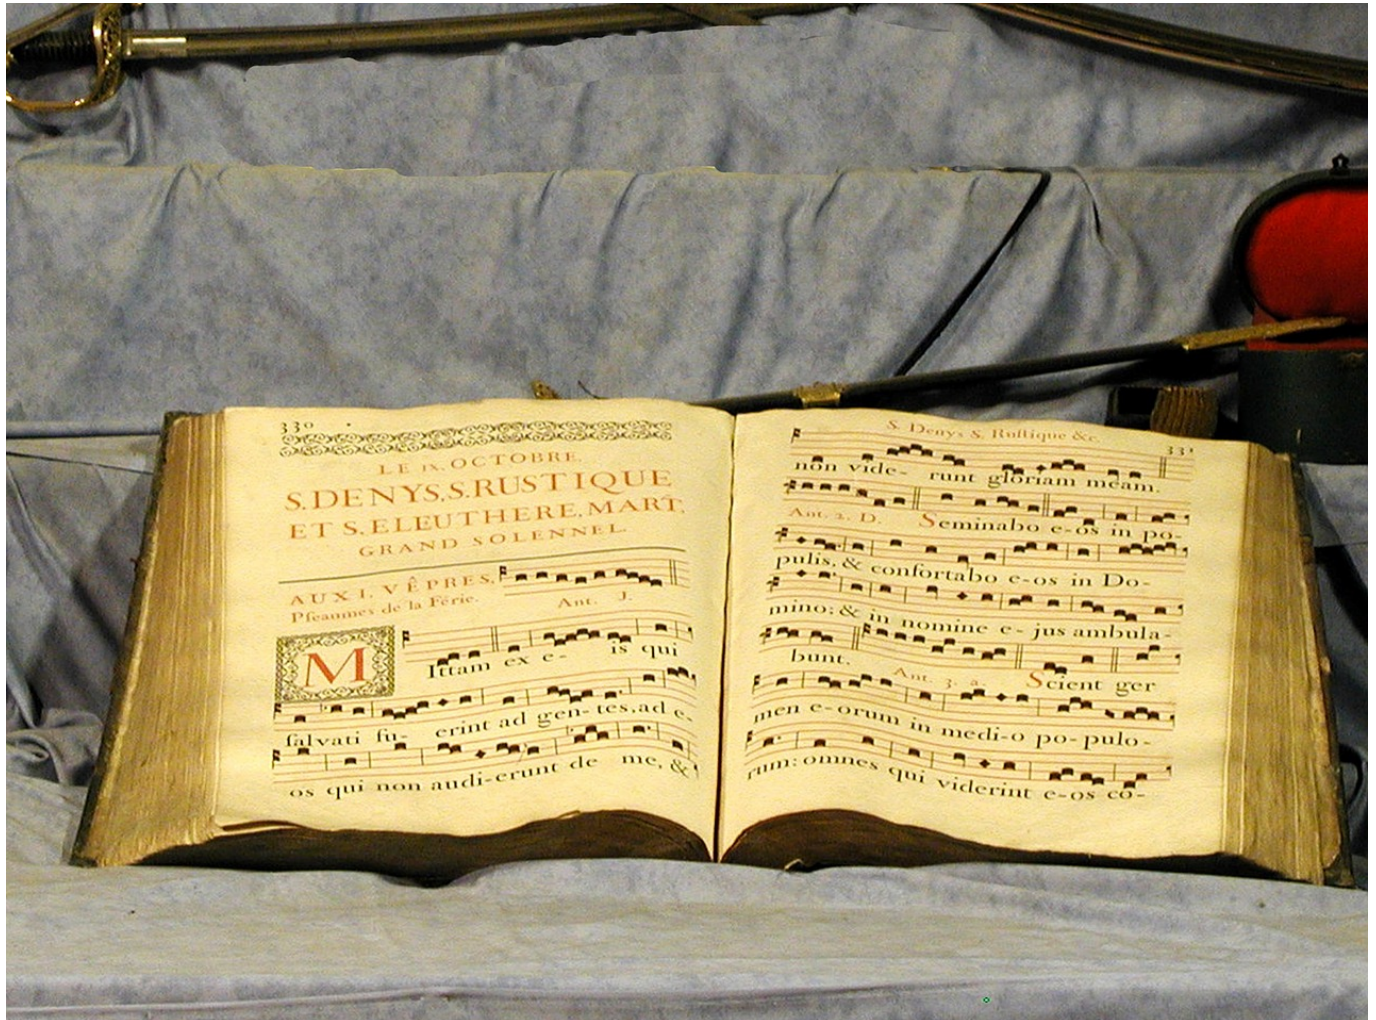 330
LE IX. OCTOBRE,
S. DENYS, S. RUSTIQUE
ET S. ELEUTHERE, MART,
GRAND SOLENNEL.
AUX I. VÊPRES,
Pſeaumes de la Férie.
Ant. J.
MIttam ex e- is qui
ſalvati fu- erint ad gen-tes, ad e-
os qui non audi-erunt de me, &
S. Denys S. Ruſtique &c. 331
non vide- runt gloriam meam.
Ant. 2. D. Seminabo e-os in po-
pulis, & confortabo e-os in Do-
mino: & in nomine e-jus ambula-
bunt. Ant. 3. a. Scient ger
men e-orum in medi-o po-pulo-
rum: omnes qui viderint e-os co-